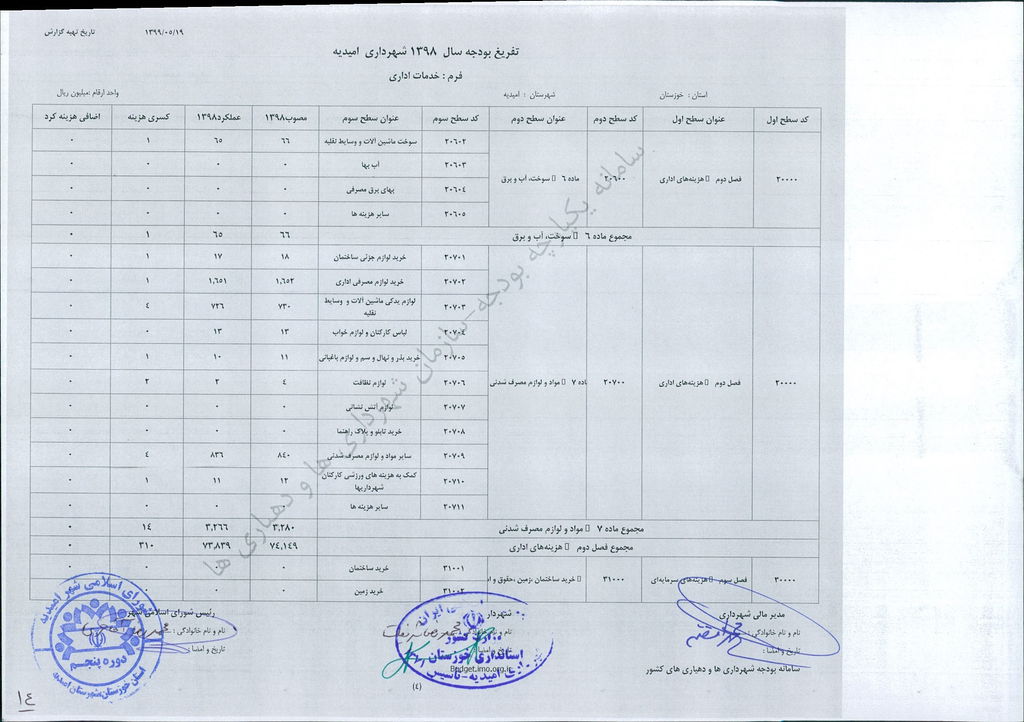 تاریخ تهیه گزارش ۱۳۹۹/۰۵/۱۹
تفریغ بودجه سال ۱۳۹۸ شهرداری امیدیه
فرم : خدمات اداری
استان : خوزستان شهرستان : امیدیه واحد ارقام :میلیون ریال
کد سطح اول عنوان سطح اول کد سطح دوم عنوان سطح دوم کد سطح سوم عنوان سطح سوم مصوب۱۳۹۸ عملکرد۱۳۹۸ کسری هزینه اضافی هزینه کرد
۲۰۰۰۰ فصل دوم هزینه‌های اداری ۲۰۶۰۰ ماده ۶ سوخت، آب و برق
۲۰۶۰۲ سوخت ماشین آلات و وسایط نقلیه ۶۶ ۶۵ ۱ ۰
۲۰۶۰۳ آب بها ۰ ۰ ۰ ۰
۲۰۶۰۴ بهای برق مصرفی ۰ ۰ ۰ ۰
۲۰۶۰۵ سایر هزینه ها ۰ ۰ ۰ ۰
مجموع ماده ۶ سوخت، آب و برق ۶۶ ۶۵ ۱ ۰
۲۰۰۰۰ فصل دوم هزینه‌های اداری ۲۰۷۰۰ ماده ۷ مواد و لوازم مصرف شدنی
۲۰۷۰۱ خرید لوازم جزئی ساختمان ۱۸ ۱۷ ۱ ۰
۲۰۷۰۲ خرید لوازم مصرفی اداری ۱,۶۵۲ ۱,۶۵۱ ۱ ۰
۲۰۷۰۳ لوازم یدکی ماشین آلات و وسایط نقلیه ۷۳۰ ۷۲۶ ۴ ۰
۲۰۷۰۴ لباس کارکنان و لوازم خواب ۱۳ ۱۳ ۰ ۰
۲۰۷۰۵ خرید بذر و نهال و سم و لوازم باغبانی ۱۱ ۱۰ ۱ ۰
۲۰۷۰۶ لوازم نظافت ۴ ۲ ۲ ۰
۲۰۷۰۷ لوازم آتش نشانی ۰ ۰ ۰ ۰
۲۰۷۰۸ خرید تابلو و پلاک راهنما ۰ ۰ ۰ ۰
۲۰۷۰۹ سایر مواد و لوازم مصرف شدنی ۸۴۰ ۸۳۶ ۴ ۰
۲۰۷۱۰ کمک به هزینه های ورزشی کارکنان شهرداریها ۱۲ ۱۱ ۱ ۰
۲۰۷۱۱ سایر هزینه ها ۰ ۰ ۰ ۰
مجموع ماده ۷ مواد و لوازم مصرف شدنی ۳,۲۸۰ ۳,۲۶۶ ۱۴ ۰
مجموع فصل دوم هزینه‌های اداری ۷۴,۱۴۹ ۷۳,۸۳۹ ۳۱۰ ۰
۳۰۰۰۰ فصل سوم هزینه‌های سرمایه‌ای ۳۱۰۰۰ خرید ساختمان ،زمین ،حقوق و ا
۳۱۰۰۱ خرید ساختمان ۰ ۰ ۰ ۰
۳۱۰۰۲ خرید زمین ۰ ۰ ۰ ۰
سامانه یکپارچه بودجه-سازمان شهرداری ها و دهیاری ها
مدیر مالی شهرداری شهردار رئیس شورای اسلامی شهر
نام و نام خانوادگی : نام و نام خانوادگی نام و نام خانوادگی :
تاریخ و امضا : تاریخ و امضا تاریخ و امضا :
سامانه بودجه شهرداری ها و دهیاری های کشور
Budget.imo.org.ir
(۴)
وزارت کشور
استانداری خوزستان
امیدیه-تاسیس
شورای اسلامی شهر امیدیه
دوره پنجم
استان خوزستان،شهرستان امیدیه
۱۴